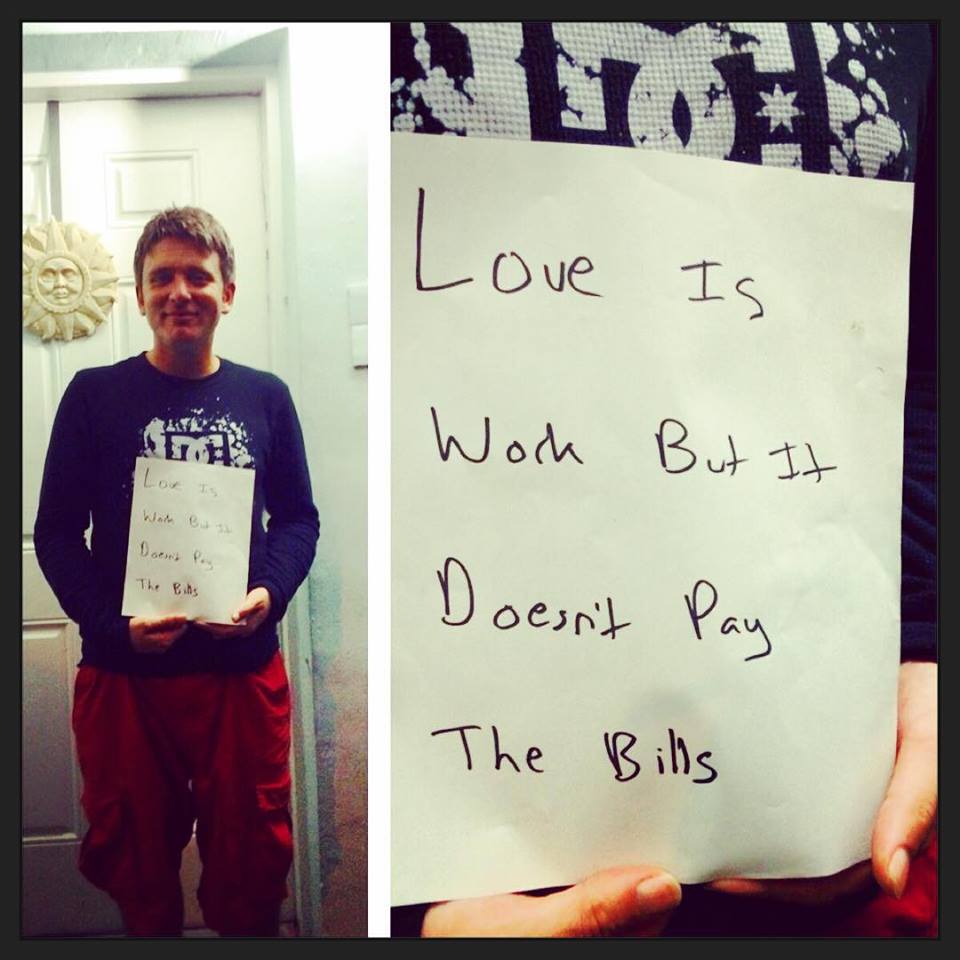 Love Is
Work But It
Doesn't Pay
The Bills
Love Is
Work But It
Doesn't Pay
The Bills